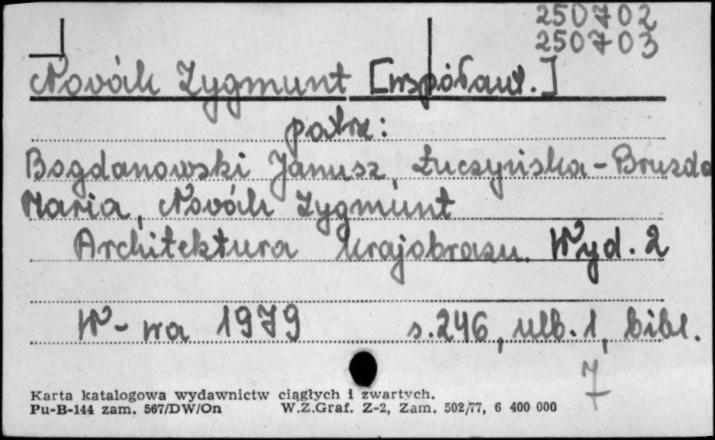 250702
250703
Novák Zygmunt [współaut.]
patrz:
Bogdanowski Janusz, Łuczyńska-Bruzda
Maria, Novák Zygmunt
Architektura krajobrazu. Wyd. 2
W-wa 1979 s.246, ulb.1, bibl.
7
Karta katalogowa wydawnictw ciągłych i zwartych.
Pu-B-144 zam. 567/DW/On W.Z.Graf. Z-2, Zam. 502/77, 6 400 000